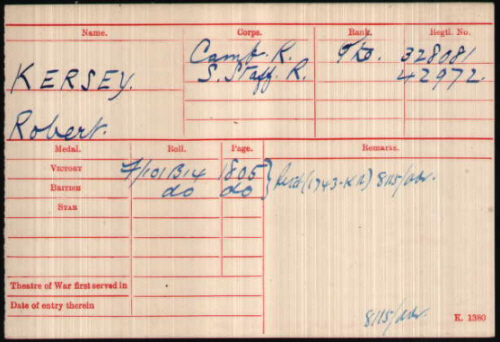 Name. Corps. Rank. Regtl. No.
KERSEY. Camb. R. Pte. 328081
Robert. S. Staff. R. 42972.
Medal. Roll. Page. Remarks.
VICTORY F/101B14 1805
BRITISH do do
STAR
(1743-KR) 8115/Adv.
Theatre of War first served in
Date of entry therein
8115/Adv. K. 1380